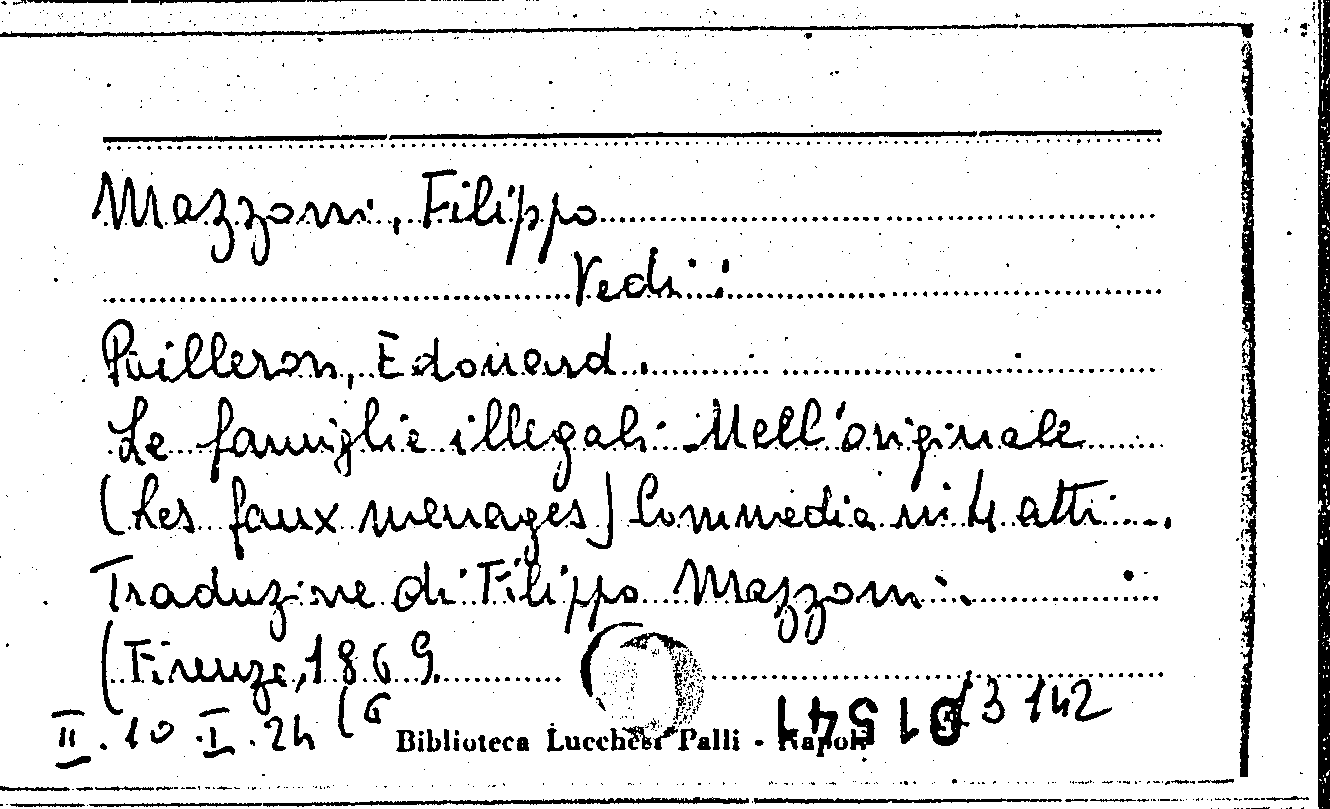 Mazzoni, Filippo
Vedi:
Pailleron, Edouard.
Le famiglie illegali. Nell'originale
(Les faux menages) Commedia in 4 atti.
Traduzine di Filippo Mazzoni.
(Firenze, 1869.
II.10.I.24 (6
13142
Biblioteca Lucchesi Palli - Napoli